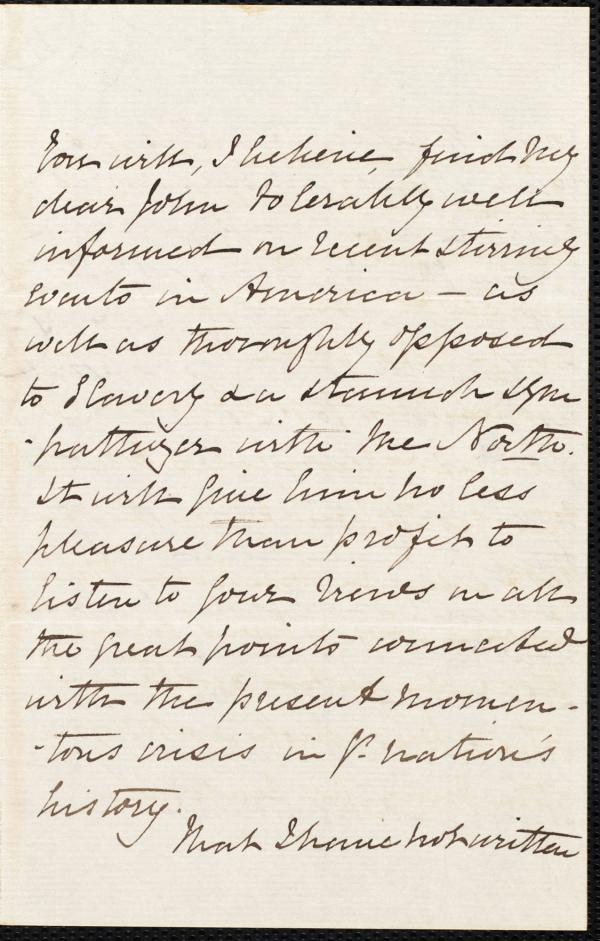 You will, I believe, find my
dear John tolerably well
informed on recent stirring
events in America – as
well as thoroughly opposed
to Slavery & a staunch sym
-pathizer with the North.
It will give him no less
pleasure than profit to
listen to your views on all
the great points connected
with the present momen-
-tous crisis in yr. nation's
history.
That I have not written